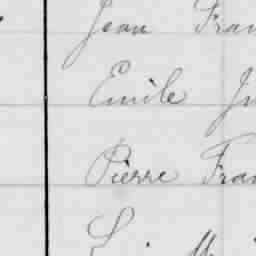 Jean Fran
Emile Ju
Pierre Fran